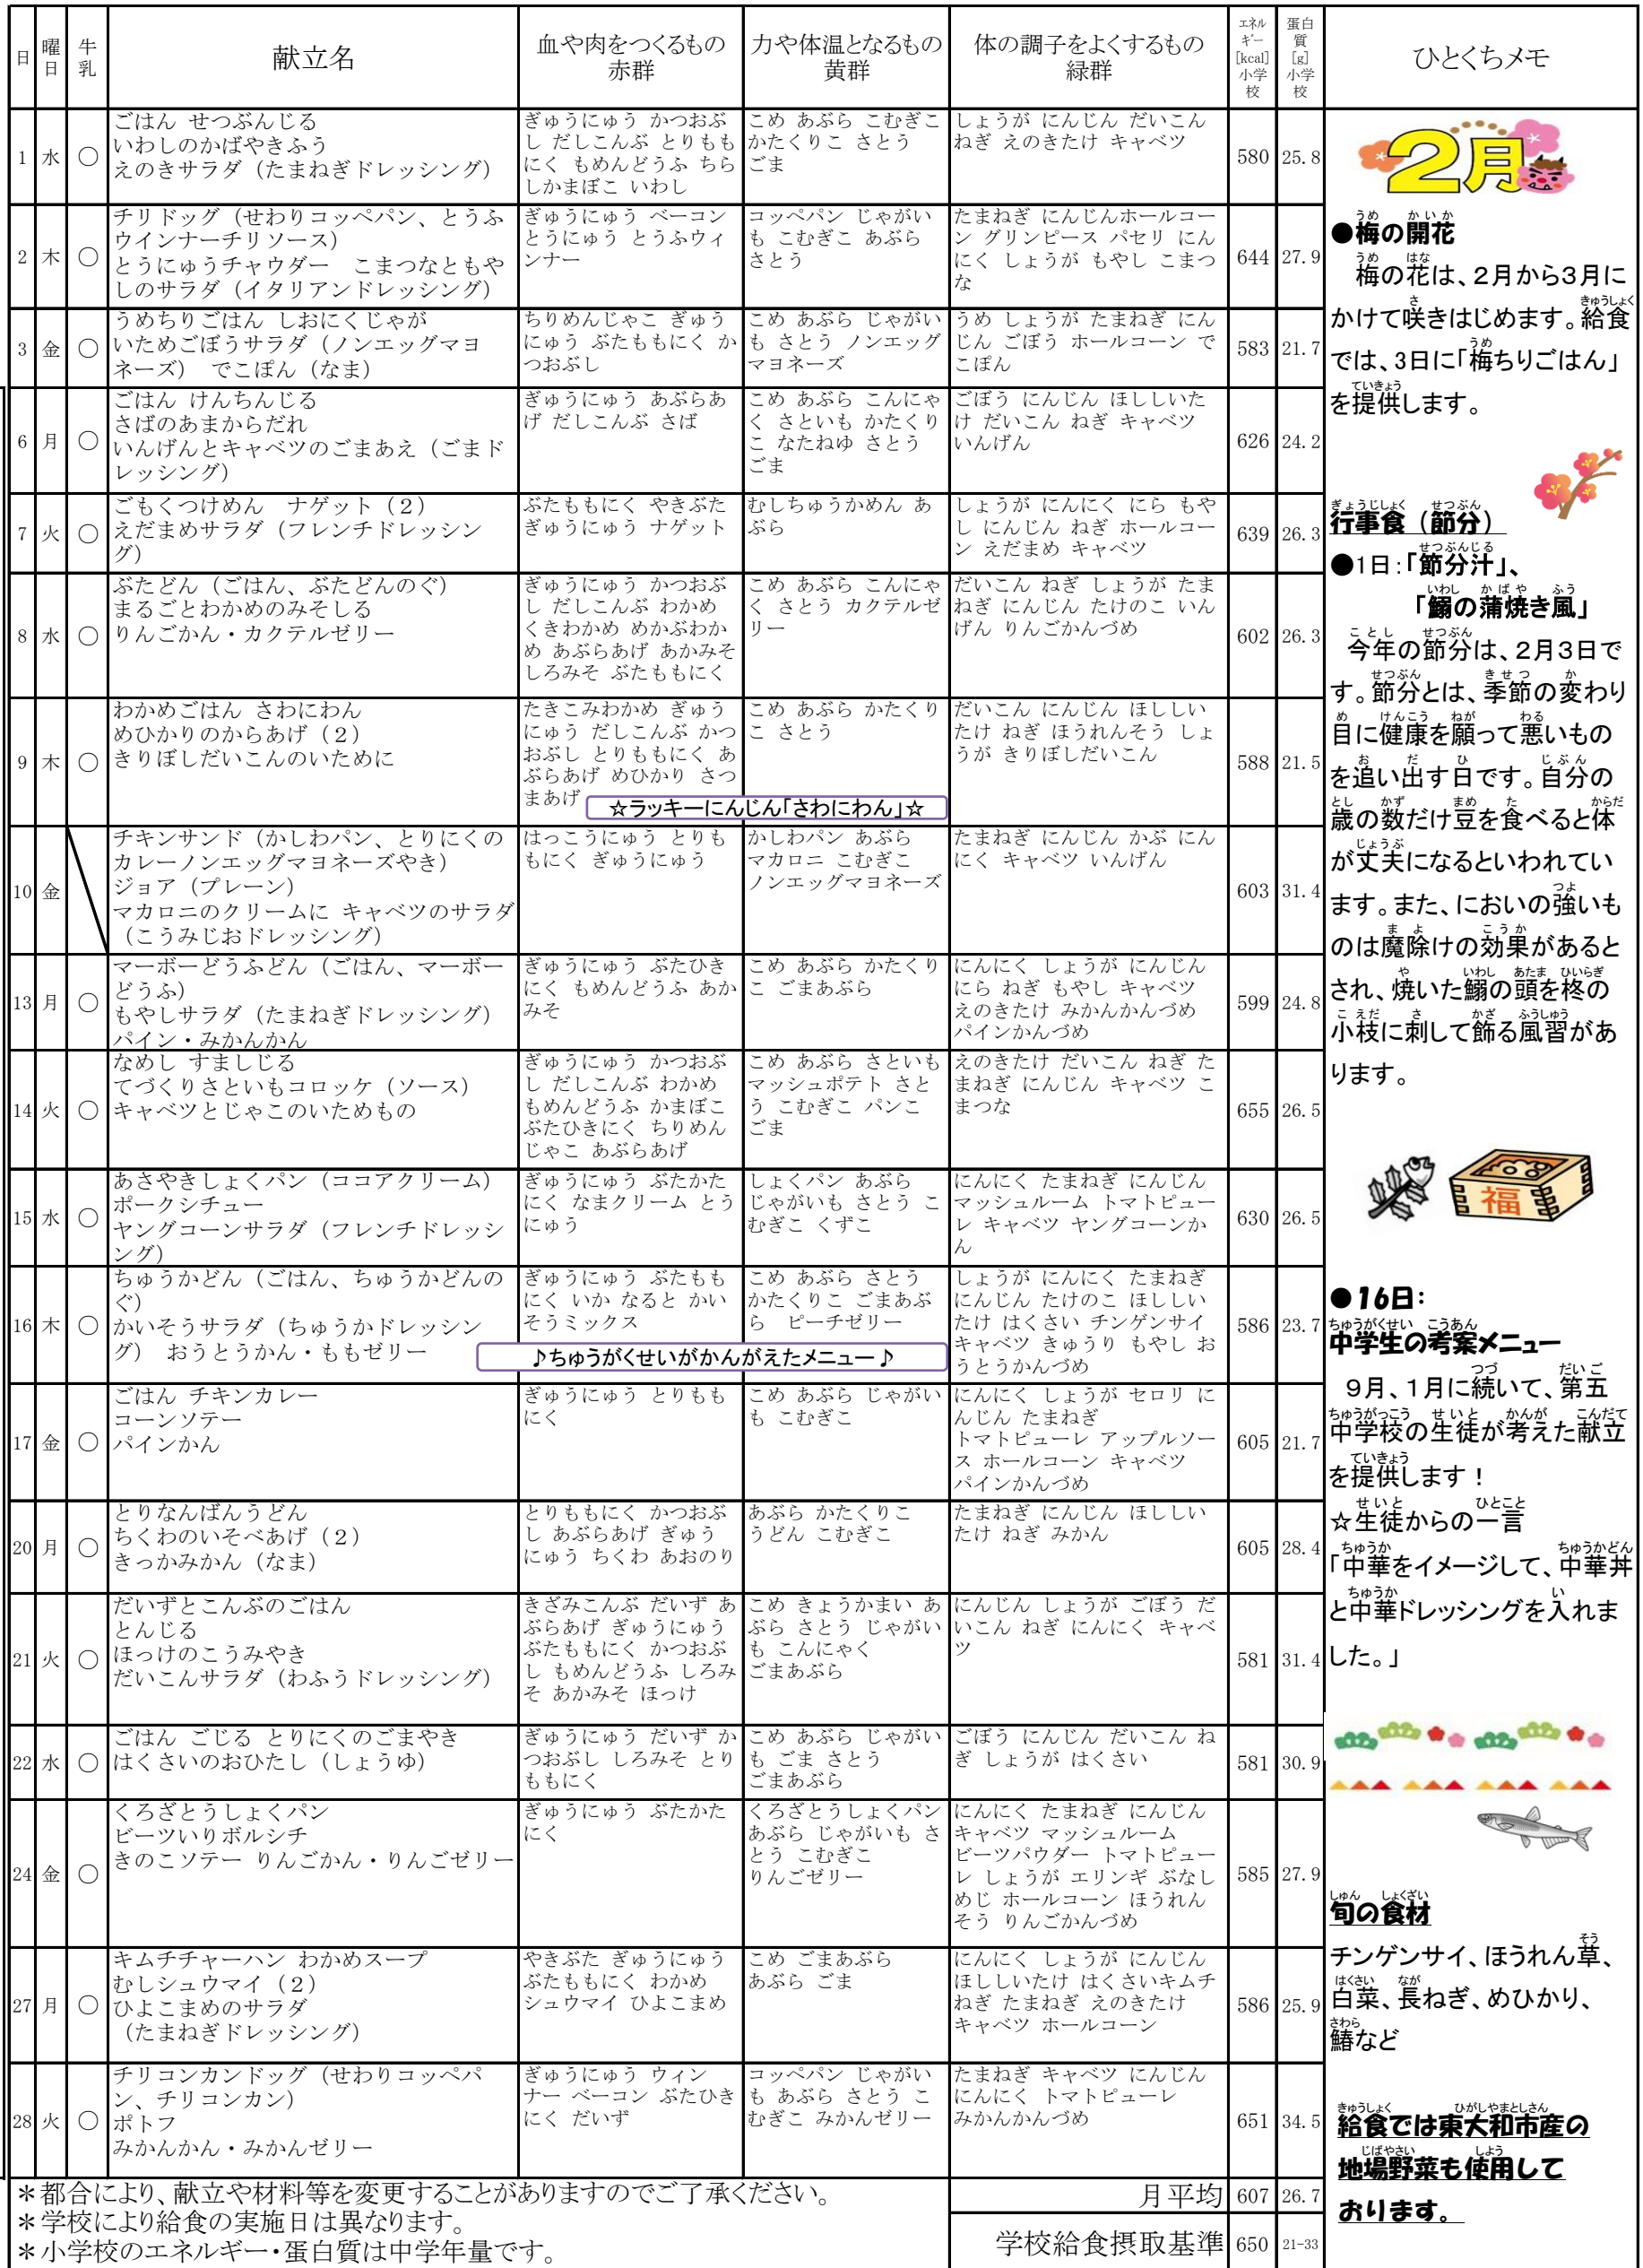 日 曜日 牛乳 献立名 血や肉をつくるもの 赤群 力や体温となるもの 黄群 体の調子をよくするもの 緑群 エネルギー[kcal]小学校 蛋白質[g]小学校 ひとくちメモ
1 水 ○
ごはん せつぶんじる
いわしのかばやきふう
えのきサラダ（たまねぎドレッシング）
ぎゅうにゅう かつおぶ
し だしこんぶ とりもも
にく もめんどうふ ちら
しかまぼこ いわし
こめ あぶら こむぎこ
かたくりこ さとう
ごま
しょうが にんじん だいこん
ねぎ えのきたけ キャベツ
580 25.8
2 木 ○
チリドッグ（せわりコッペパン、とうふ
ウインナーチリソース）
とうにゅうチャウダー こまつなともや
しのサラダ（イタリアンドレッシング）
ぎゅうにゅう ベーコン
とうにゅう とうふウィ
ンナー
コッペパン じゃがい
も こむぎこ あぶら
さとう
たまねぎ にんじんホールコー
ン グリンピース パセリ にん
にく しょうが もやし こまつ
な
644 27.9
3 金 ○
うめちりごはん しおにくじゃが
いためごぼうサラダ（ノンエッグマヨ
ネーズ） でこぽん（なま）
ちりめんじゃこ ぎゅう
にゅう ぶたももにく か
つおぶし
こめ あぶら じゃがい
も さとう ノンエッグ
マヨネーズ
うめ しょうが たまねぎ にん
じん ごぼう ホールコーン で
こぽん
583 21.7
6 月 ○
ごはん けんちんじる
さばのあまからだれ
いんげんとキャベツのごまあえ（ごまド
レッシング）
ぎゅうにゅう あぶらあ
げ だしこんぶ さば
こめ あぶら こんにゃ
く さといも かたくり
こ なたねゆ さとう
ごま
ごぼう にんじん ほししいた
け だいこん ねぎ キャベツ
いんげん
626 24.2
7 火 ○
ごもくつけめん ナゲット（２）
えだまめサラダ（フレンチドレッシン
グ）
ぶたももにく やきぶた
ぎゅうにゅう ナゲット
むしちゅうかめん あ
ぶら
しょうが にんにく にら もや
し にんじん ねぎ ホールコー
ン えだまめ キャベツ
639 26.3
8 水 ○
ぶたどん（ごはん、ぶたどんのぐ）
まるごとわかめのみそしる
りんごかん・カクテルゼリー
ぎゅうにゅう かつおぶ
し だしこんぶ わかめ
くきわかめ めかぶわか
め あぶらあげ あかみそ
しろみそ ぶたももにく
こめ あぶら こんにゃ
く さとう カクテルゼ
リー
だいこん ねぎ しょうが たま
ねぎ にんじん たけのこ いん
げん りんごかんづめ
602 26.3
9 木 ○
わかめごはん さわにわん
めひかりのからあげ（２）
きりぼしだいこんのいために
たきこみわかめ ぎゅう
にゅう だしこんぶ かつ
おぶし とりももにく あ
ぶらあげ めひかり さつ
まあげ
こめ あぶら かたくり
こ さとう
☆ラッキーにんじん「さわにわん」☆
だいこん にんじん ほししい
たけ ねぎ ほうれんそう しょ
うが きりぼしだいこん
588 21.5
10 金
チキンサンド（かしわパン、とりにくの
カレーノンエッグマヨネーズやき）
ジョア（プレーン）
マカロニのクリームに キャベツのサラダ
（こうみじおドレッシング）
はっこうにゅう とりも
もにく ぎゅうにゅう
かしわパン あぶら
マカロニ こむぎこ
ノンエッグマヨネーズ
たまねぎ にんじん かぶ にん
にく キャベツ いんげん
603 31.4
13 月 ○
マーボーどうふどん（ごはん、マーボー
どうふ）
もやしサラダ（たまねぎドレッシング）
パイン・みかんかん
ぎゅうにゅう ぶたひき
にく もめんどうふ あか
みそ
こめ あぶら かたくり
こ ごまあぶら
にんにく しょうが にんじん
にら ねぎ もやし キャベツ
えのきたけ みかんかんづめ
パインかんづめ
599 24.8
14 火 ○
なめし すましじる
てづくりさといもコロッケ（ソース）
キャベツとじゃこのいためもの
ぎゅうにゅう かつおぶ
し だしこんぶ わかめ
もめんどうふ かまぼこ
ぶたひきにく ちりめん
じゃこ あぶらあげ
こめ あぶら さといも
マッシュポテト さと
う こむぎこ パンこ
ごま
えのきたけ だいこん ねぎ た
まねぎ にんじん キャベツ こ
まつな
655 26.5
15 水 ○
あさやきしょくパン（ココアクリーム）
ポークシチュー
ヤングコーンサラダ（フレンチドレッシ
ング）
ぎゅうにゅう ぶたかた
にく なまクリーム とう
にゅう
しょくパン あぶら
じゃがいも さとう こ
むぎこ くずこ
にんにく たまねぎ にんじん
マッシュルーム トマトピュー
レ キャベツ ヤングコーンか
ん
630 26.5
16 木 ○
ちゅうかどん（ごはん、ちゅうかどんの
ぐ）
かいそうサラダ（ちゅうかドレッシン
グ） おうとうかん・ももゼリー
ぎゅうにゅう ぶたもも
にく いか なると かい
そうミックス
こめ あぶら さとう
かたくりこ ごまあぶ
ら ピーチゼリー
♪ちゅうがくせいがかんがえたメニュー♪
しょうが にんにく たまねぎ
にんじん たけのこ ほししい
たけ はくさい チンゲンサイ
キャベツ きゅうり もやし お
うとうかんづめ
586 23.7
17 金 ○
ごはん チキンカレー
コーンソテー
パインかん
ぎゅうにゅう とりもも
にく
こめ あぶら じゃがい
も こむぎこ
にんにく しょうが セロリ に
んじん たまねぎ
トマトピューレ アップルソー
ス ホールコーン キャベツ
パインかんづめ
605 21.7
20 月 ○
とりなんばんうどん
ちくわのいそべあげ（２）
きっかみかん（なま）
とりももにく かつおぶ
し あぶらあげ ぎゅう
にゅう ちくわ あおのり
あぶら かたくりこ
うどん こむぎこ
たまねぎ にんじん ほししい
たけ ねぎ みかん
605 28.4
21 火 ○
だいずとこんぶのごはん
とんじる
ほっけのこうみやき
だいこんサラダ（わふうドレッシング）
きざみこんぶ だいず あ
ぶらあげ ぎゅうにゅう
ぶたももにく かつおぶ
し もめんどうふ しろみ
そ あかみそ ほっけ
こめ きょうかまい あ
ぶら さとう じゃがい
も こんにゃく
ごまあぶら
にんじん しょうが ごぼう だ
いこん ねぎ にんにく キャベ
ツ
581 31.4
22 水 ○
ごはん ごじる とりにくのごまやき
はくさいのおひたし（しょうゆ）
ぎゅうにゅう だいず か
つおぶし しろみそ とり
ももにく
こめ あぶら じゃがい
も ごま さとう
ごまあぶら
ごぼう にんじん だいこん ね
ぎ しょうが はくさい
581 30.9
24 金 ○
くろざとうしょくパン
ビーツいりボルシチ
きのこソテー りんごかん・りんごゼリー
ぎゅうにゅう ぶたかた
にく
くろざとうしょくパン
あぶら じゃがいも さ
とう こむぎこ
りんごゼリー
にんにく たまねぎ にんじん
キャベツ マッシュルーム
ビーツパウダー トマトピュー
レ しょうが エリンギ ぶなし
めじ ホールコーン ほうれん
そう りんごかんづめ
585 27.9
27 月 ○
キムチチャーハン わかめスープ
むしシュウマイ（２）
ひよこまめのサラダ
（たまねぎドレッシング）
やきぶた ぎゅうにゅう
ぶたももにく わかめ
シュウマイ ひよこまめ
こめ ごまあぶら
あぶら ごま
にんにく しょうが にんじん
ほししいたけ はくさいキムチ
ねぎ たまねぎ えのきたけ
キャベツ ホールコーン
586 25.9
28 火 ○
チリコンカンドッグ（せわりコッペパ
ン、チリコンカン）
ポトフ
みかんかん・みかんゼリー
ぎゅうにゅう ウィン
ナー ベーコン ぶたひき
にく だいず
コッペパン じゃがい
も あぶら さとう こ
むぎこ みかんゼリー
たまねぎ キャベツ にんじん
にんにく トマトピューレ
みかんかんづめ
651 34.5
＊都合により、献立や材料等を変更することがありますのでご了承ください。
＊学校により給食の実施日は異なります。
＊小学校のエネルギー・蛋白質は中学年量です。
月平均 607 26.7
学校給食摂取基準 650 21-33
2月
●梅の開花
梅の花は、２月から３月に
かけて咲きはじめます。給食
では、3日に「梅ちりごはん」
を提供します。
行事食（節分）
●1日：「節分汁」、
「鰯の蒲焼き風」
今年の節分は、２月３日で
す。節分とは、季節の変わり
目に健康を願って悪いもの
を追い出す日です。自分の
歳の数だけ豆を食べると体
が丈夫になるといわれてい
ます。また、においの強いも
のは魔除けの効果があると
され、焼いた鰯の頭を柊の
小枝に刺して飾る風習があ
ります。
福
●16日：
中学生の考案メニュー
９月、１月に続いて、第五
中学校の生徒が考えた献立
を提供します！
☆生徒からの一言
「中華をイメージして、中華丼
と中華ドレッシングを入れま
した。」
旬の食材
チンゲンサイ、ほうれん草、
白菜、長ねぎ、めひかり、
鰆など
給食では東大和市産の
地場野菜も使用して
おります。